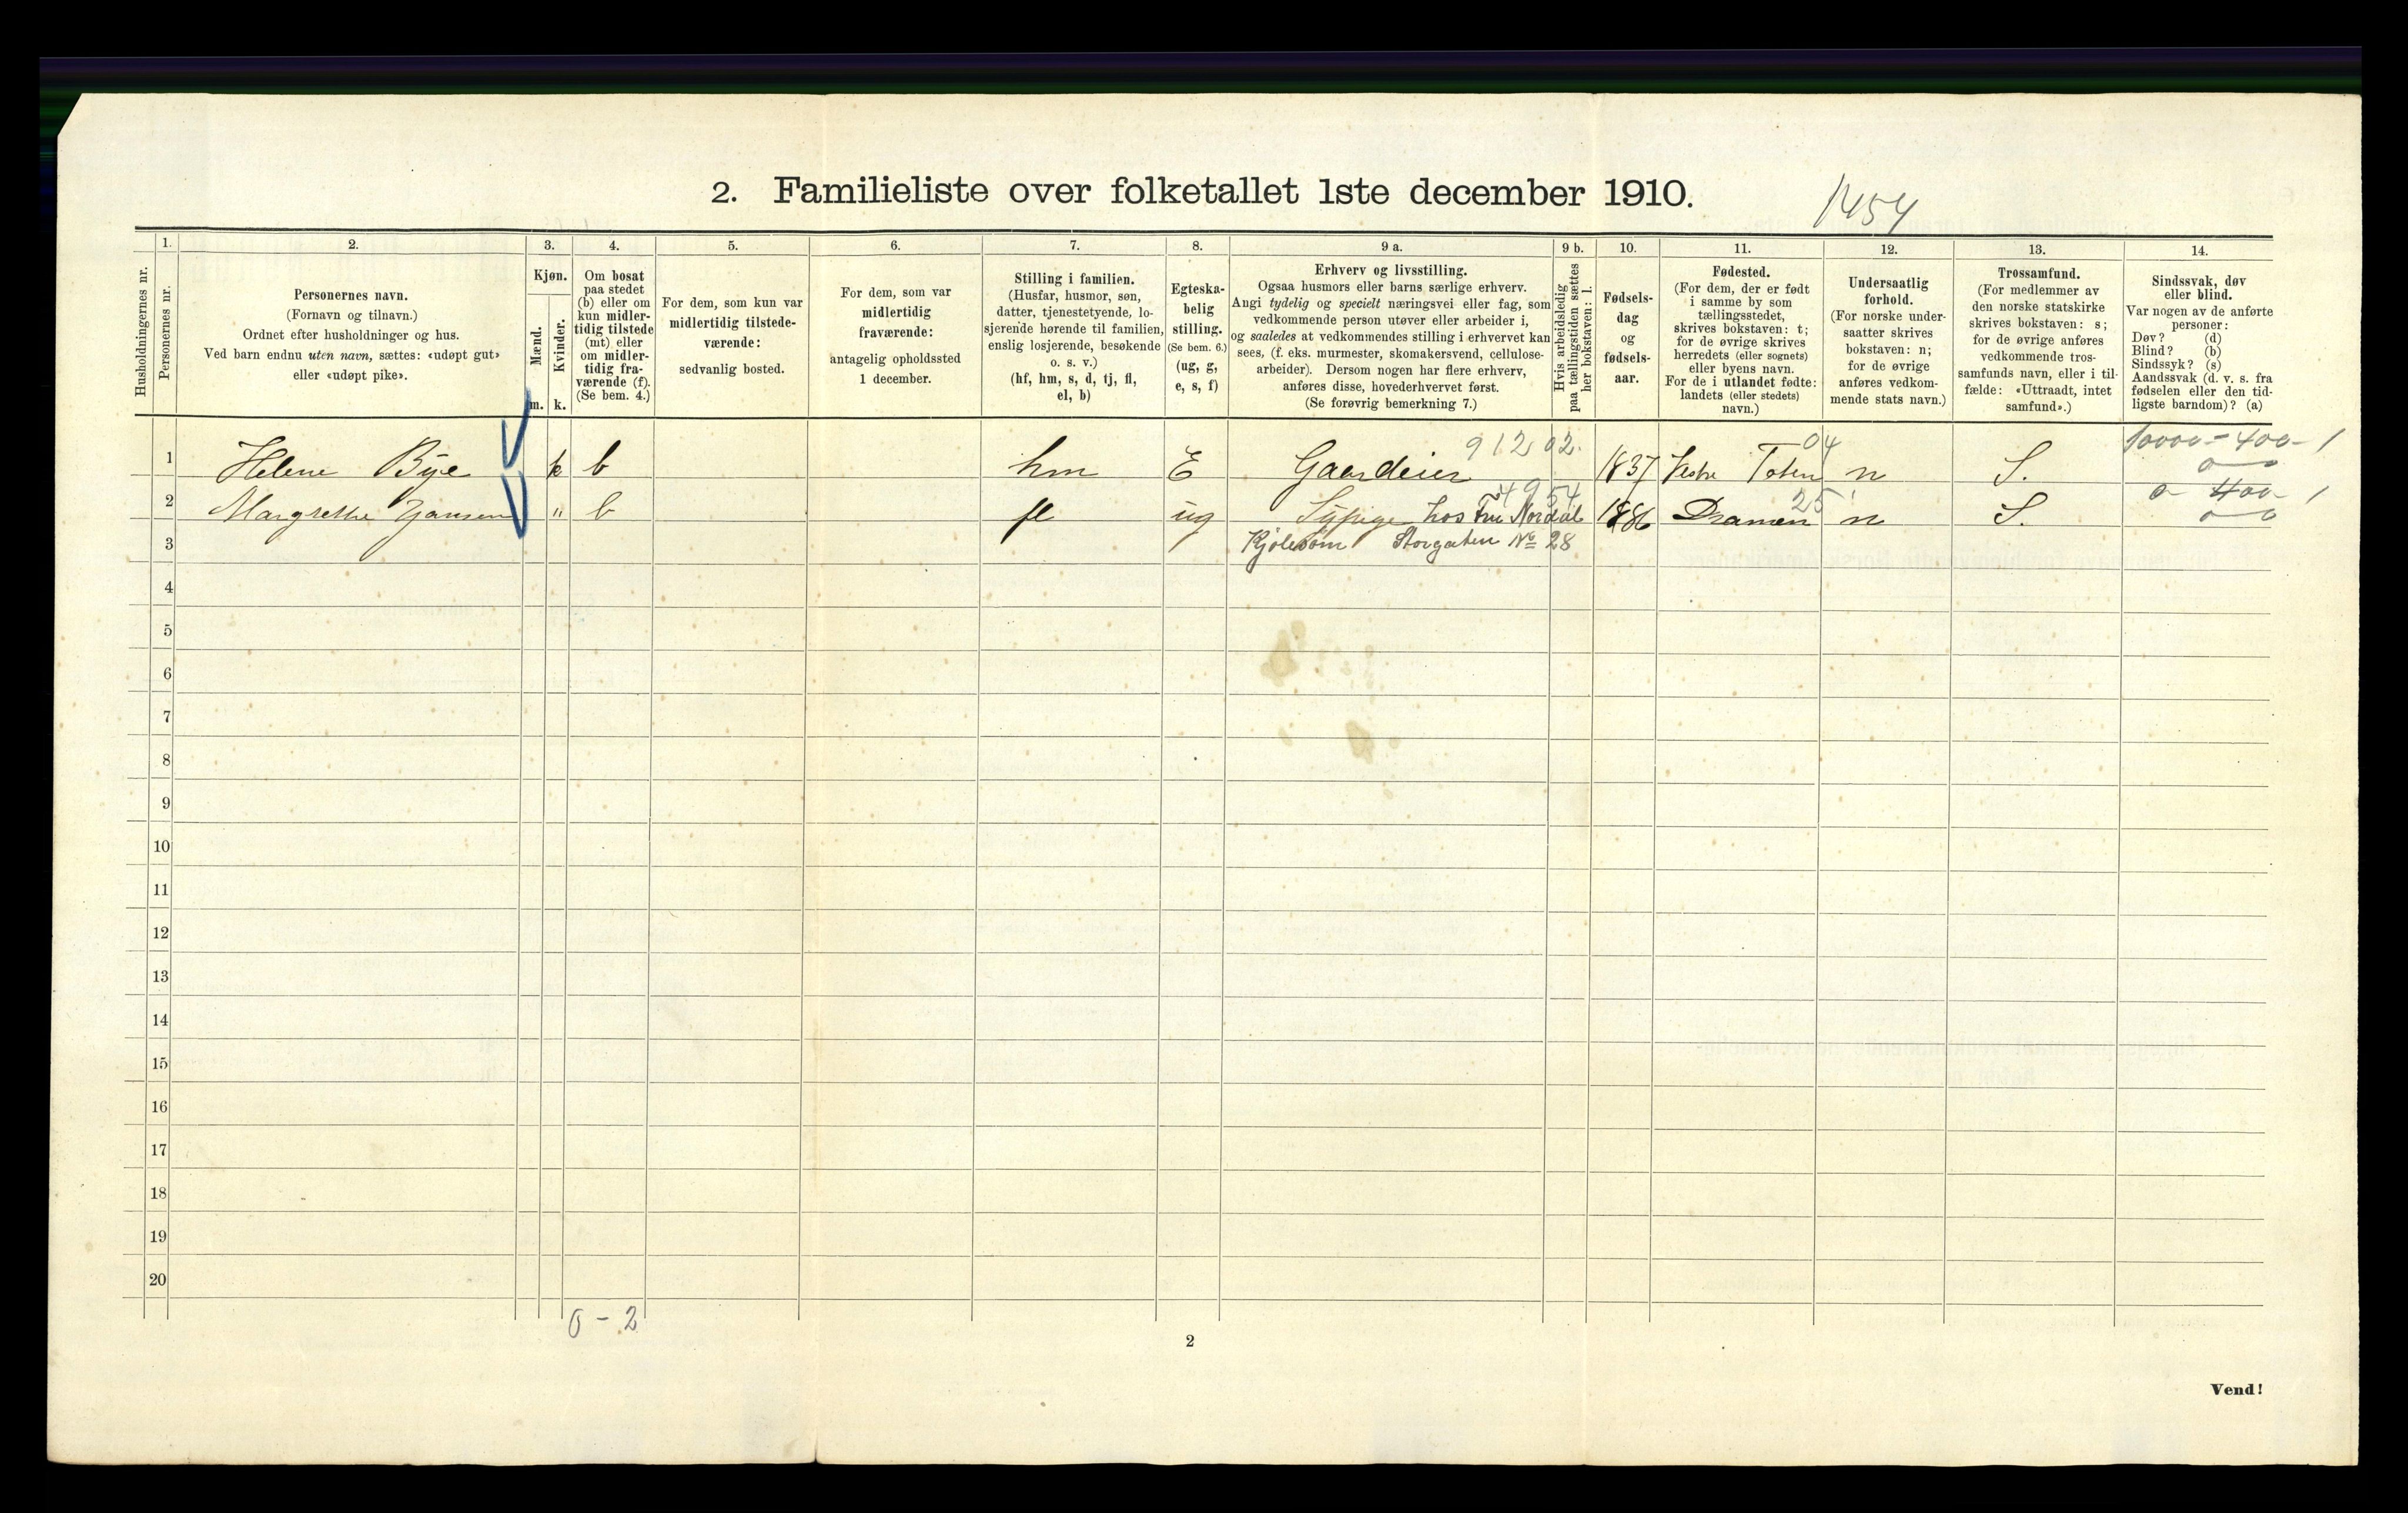 2. Familieliste over folketallet 1ste december 1910.
1454
1. 2. 3. 4. 5. 6. 7. 8. 9 a. 9 b. 10. 11. 12. 13. 14.
Husholdningernes nr.
Personernes nr.
Personernes navn.
(Fornavn og tilnavn.)
Ordnet efter husholdninger og hus.
Ved barn endnu uten navn, sættes: «udøpt gut»
eller «udøpt pike».
Kjøn.
Mænd.
Kvinder.
m. k.
Om bosat
paa stedet
(b) eller om
kun midler-
tidig tilstede
(mt) eller
om midler-
tidig fra-
værende (f).
(Se bem. 4.)
For dem, som kun var
midlertidig tilstede-
værende:
sedvanlig bosted.
For dem, som var
midlertidig
fraværende:
antagelig opholdssted
1 december.
Stilling i familien.
(Husfar, husmor, søn,
datter, tjenestetyende, lo-
sjerende hørende til familien,
enslig losjerende, besøkende
o. s. v.)
(hf, hm, s, d, tj, fl,
el, b)
Egteska-
belig
stilling.
(Se bem. 6.)
(ug, g,
e, s, f)
Erhverv og livsstilling.
Ogsaa husmors eller barns særlige erhverv.
Angi tydelig og specielt næringsvei eller fag, som
vedkommende person utøver eller arbeider i,
og saaledes at vedkommendes stilling i erhvervet kan
sees, (f. eks. murmester, skomakersvend, cellulose-
arbeider). Dersom nogen har flere erhverv,
anføres disse, hovederhvervet først.
(Se forøvrig bemerkning 7.)
Hvis arbeidsledig
paa tællingstiden sættes
her bokstaven: l.
Fødsels-
dag
og
fødsels-
aar.
Fødested.
(For dem, der er født
i samme by som
tællingsstedet,
skrives bokstaven: t;
for de øvrige skrives
herredets (eller sognets)
eller byens navn.
For de i utlandet fødte:
landets (eller stedets)
navn.)
Undersaatlig
forhold.
(For norske under-
saatter skrives
bokstaven: n;
for de øvrige
anføres vedkom-
mende stats navn.)
Trossamfund.
(For medlemmer av
den norske statskirke
skrives bokstaven: s;
for de øvrige anføres
vedkommende tros-
samfunds navn, eller i til-
fælde: «Uttraadt, intet
samfund».)
Sindssvak, døv
eller blind.
Var nogen av de anførte
personer:
Døv? (d)
Blind? (b)
Sindssyk? (s)
Aandssvak (d. v. s. fra
fødselen eller den tid-
ligste barndom)? (a)
912 02. 04 10000 - 400 - 1
1 Helene Bye k b hm E Gaardeier 1837 Vestre Toten n S. 0 0
4954 25 0 400 - 1
2 Margrethe Jansen " b fl ug Sypige hos Fru Nordal 1886 Dramen n S. 0 0
3 Kjolesøm Storgaten No 28
4
5
6
7
8
9
10
11
12
13
14
15
16
17
18
19
20
0 - 2
2
Vend!